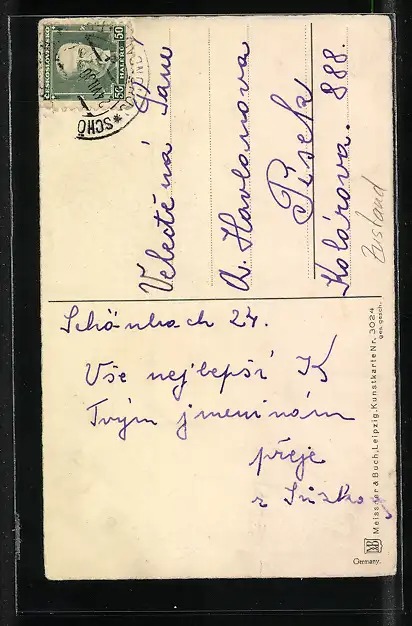 ČESKOSLOVENSKO
50 HALÉŘŮ 50
* SCHÖ
Velectěná Paní
A. Havlanova
Písek
Kolárova. 888.
Ausland
Schönbach 24.
Vše nejlepší K
Tvým jmeninám
přeje
Meissner & Buch, Leipzig, Kunstkarte Nr. 3024
ges. gesch.
Germany.